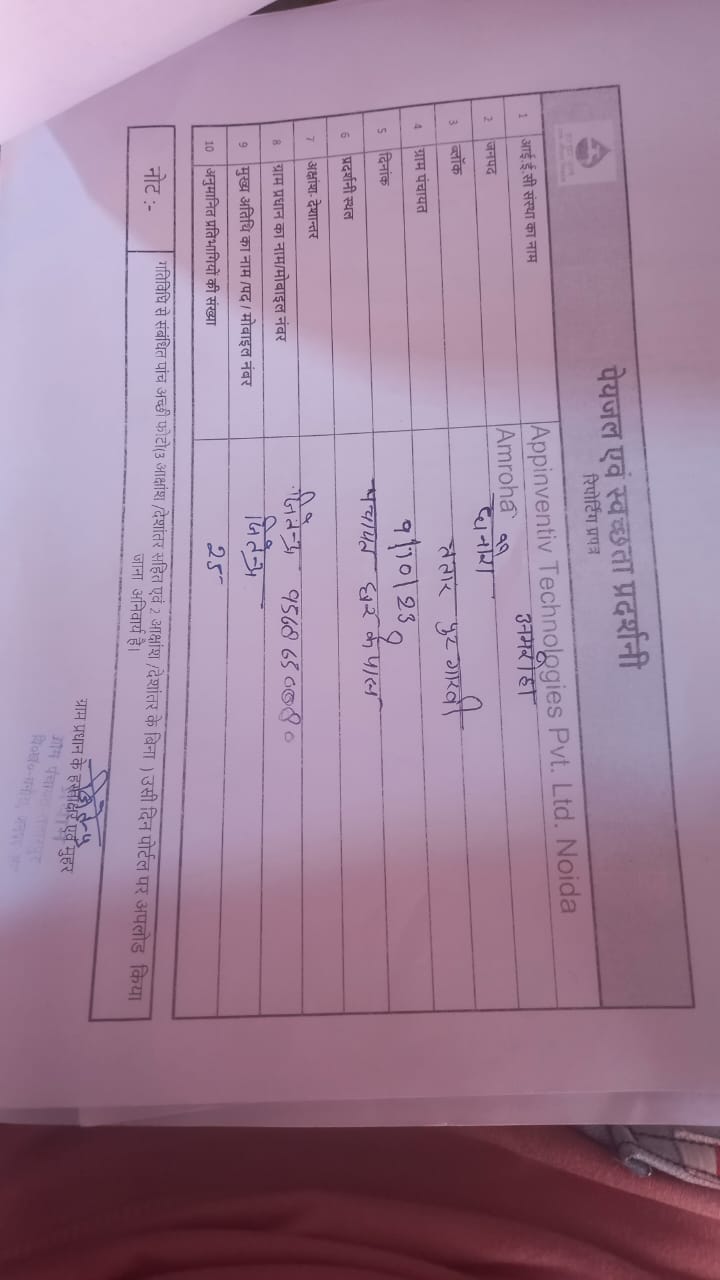 पेयजल एवं स्वच्छता प्रदर्शनी
रिपोर्टिंग प्रपत्र
1 आई.ई.सी संस्था का नाम Appinventiv Technologies Pvt. Ltd. Noida
2 जनपद Amroha
3 ब्लॉक
4 ग्राम पंचायत
5 दिनांक 9/10/23
6 प्रदर्शनी स्थल पंचायत घर के पास
7 अक्षांश-देशान्तर
8 ग्राम प्रधान का नाम/मोबाइल नंबर जितेन्द्र
9 मुख्य अतिथि का नाम /पद / मोबाइल नंबर जितेन्द्र
10 अनुमानित प्रतिभागियों की संख्या 25
नोट :- गतिविधि से संबंधित पांच अच्छी फोटो(3 आक्षांश /देशांतर सहित एवं 2 आक्षांश /देशांतर के बिना ) उसी दिन पोर्टल पर अपलोड किया
जाना अनिवार्य है।
ग्राम प्रधान के हस्ताक्षर एवं मुहर